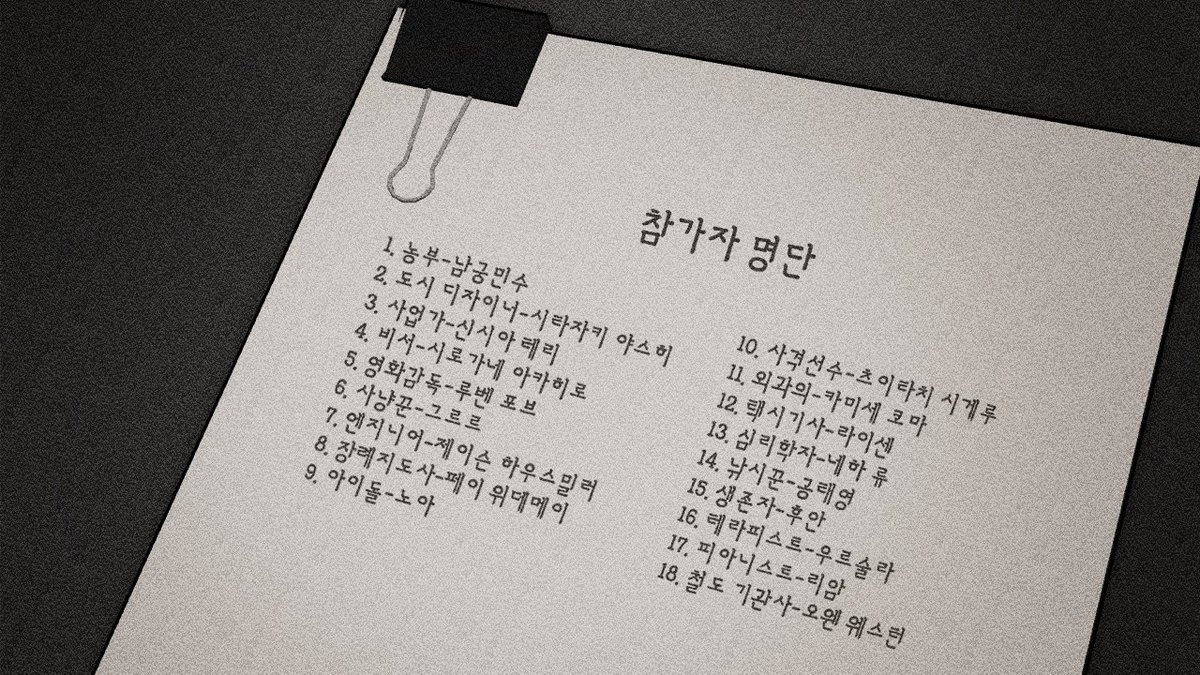 참가자 명단
1. 농부-남궁민수
2. 도시 디자이너-시라자키 야스히
3. 사업가-신시아 테리
4. 비서-시로가네 아카히로
5. 영화감독-루벤 포브
6. 사냥꾼-그르르
7. 엔지니어-제이슨 하우스밀러
8. 장례지도사-페이 위데메이
9. 아이돌-노아
10. 사격선수-츠이타치 시게루
11. 외과의-카미세 코마
12. 택시기사-라이센
13. 심리학자-네하 류
14. 낚시꾼-공태영
15. 생존자-후안
16. 테라피스트-우르술라
17. 피아니스트-리암
18. 철도 기관사-오웬 웨스턴